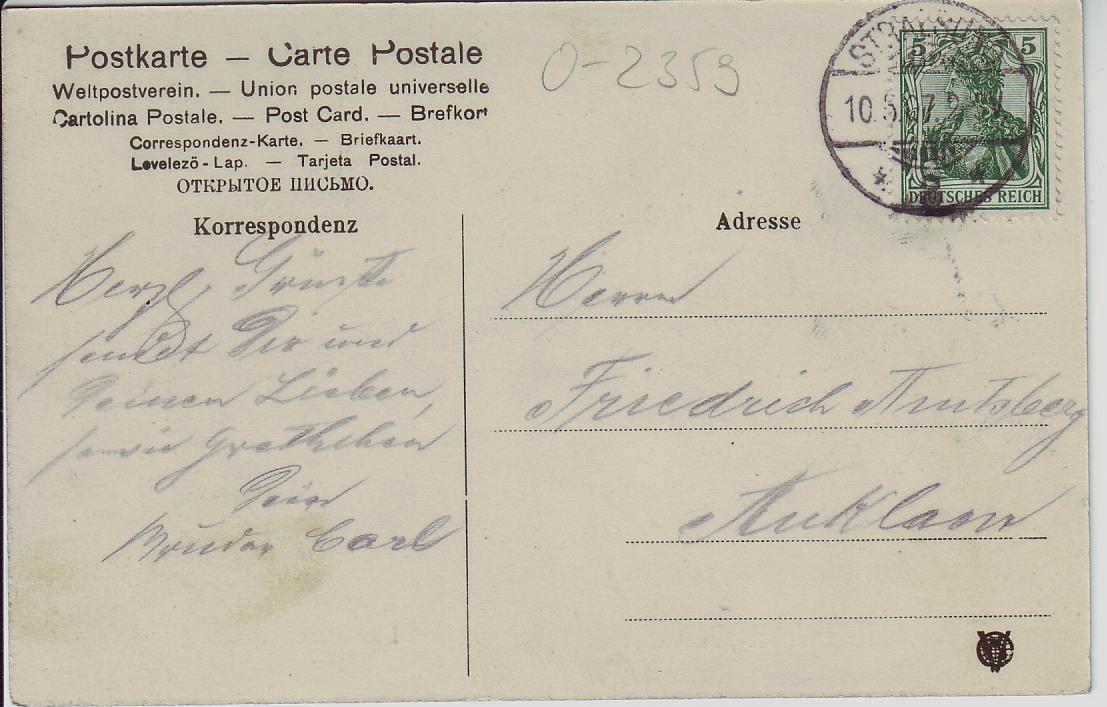 Postkarte — Carte Postale
Weltpostverein. — Union postale universelle
Cartolina Postale. — Post Card. — Brefkort
Correspondenz-Karte. — Briefkaart.
Levelező-Lap. — Tarjeta Postal.
ОТКРЫТОЕ ПИСЬМО.
O-2359
STRALSUND
10.07.
5 5
DEUTSCHES REICH
Korrespondenz
Herzl. Grüße
sendet Dir und
Deinen Lieben,
sowie Grethchen
Dein
Bruder Carl
Adresse
Herrn
Friedrich Amtsberg
Anklam